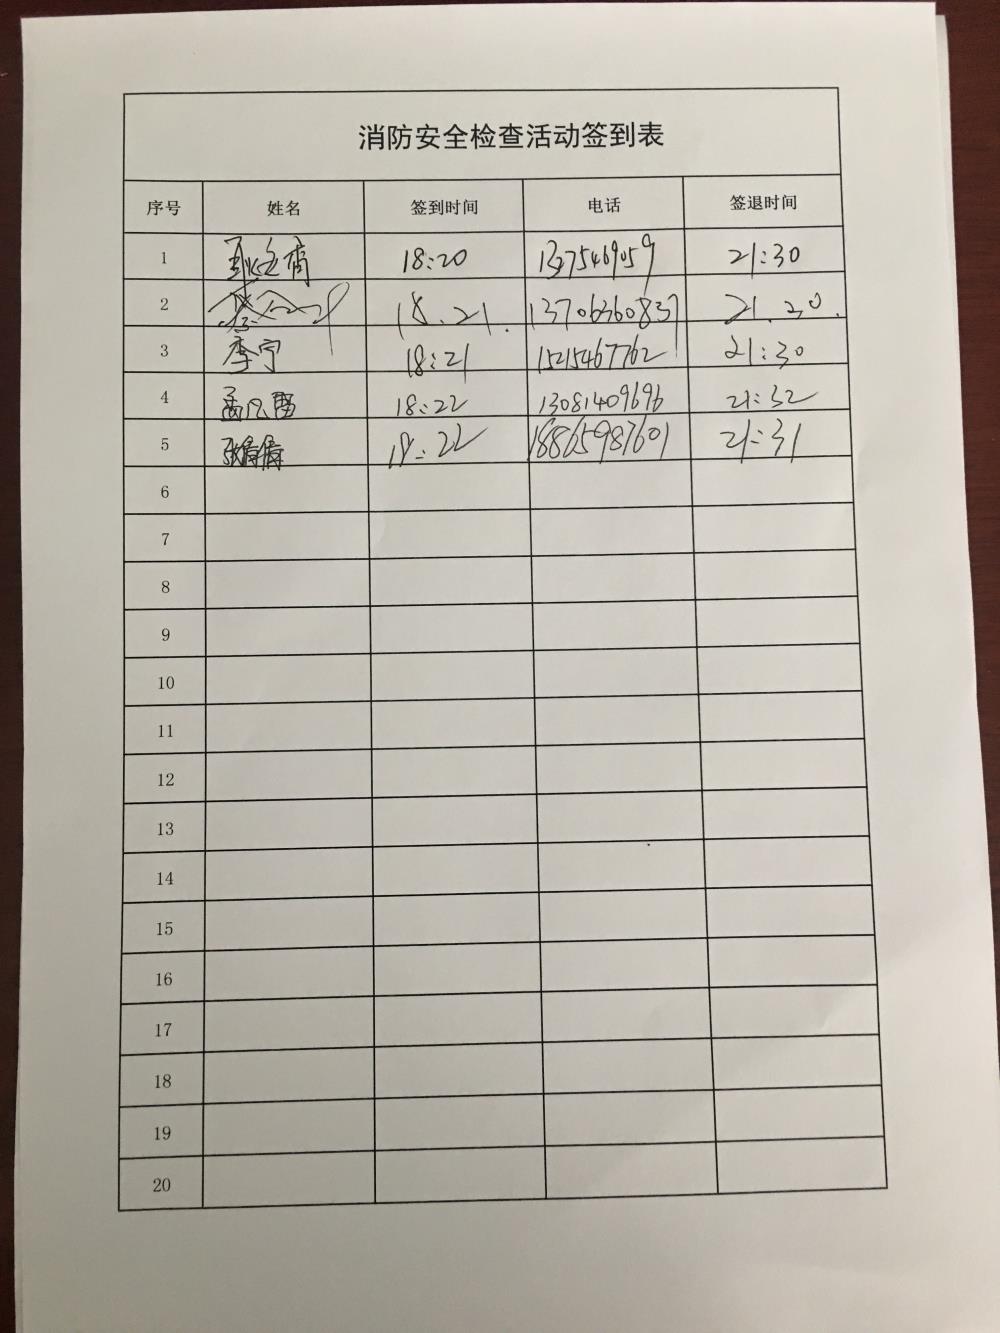 消防安全检查活动签到表
序号 姓名 签到时间 电话 签退时间
1 18:20 21:30
2 18.21. 13706360837 21.30.
3 李宁 18:21 15215467762 21:30
4 孟凡雷 18:22 13081409696 21:32
5 张倩倩 18:22 18865987601 21:31
6
7
8
9
10
11
12
13
14
15
16
17
18
19
20